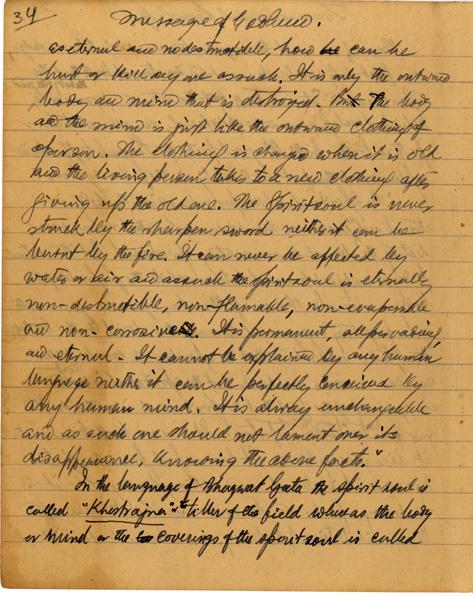 34
Message of Godhead.
as eternal and nodestructible, how he can be
hurt or kill any one as such. It is only the outward
body and mind that is destroyed. But The body
and the mind is just like the outward clothing of
a person. The clothing is changed when it is old
and the living person takes to a new clothing after
giving up the old one. The Spirit soul is never
struck by the sharpen sword neither it can be
burnt by the fire. It can never be affected by
water or air and as such the spirit soul is eternally
non-destructible, non-flamable, non-evaporable
and non-corrosive. It is permanent, all pervading
and eternal. It cannot be explained by any human
language neither it can be perfectly conceived by
any human mind. It is alway unchangeable
and as such one should not lament over its
disappearance, knowing the above facts."
In the language of Bhagwat Geeta the spirit soul is
called "Khestrajna" the tiller of the field whereas the body
or mind or the coverings of the spirit soul is called